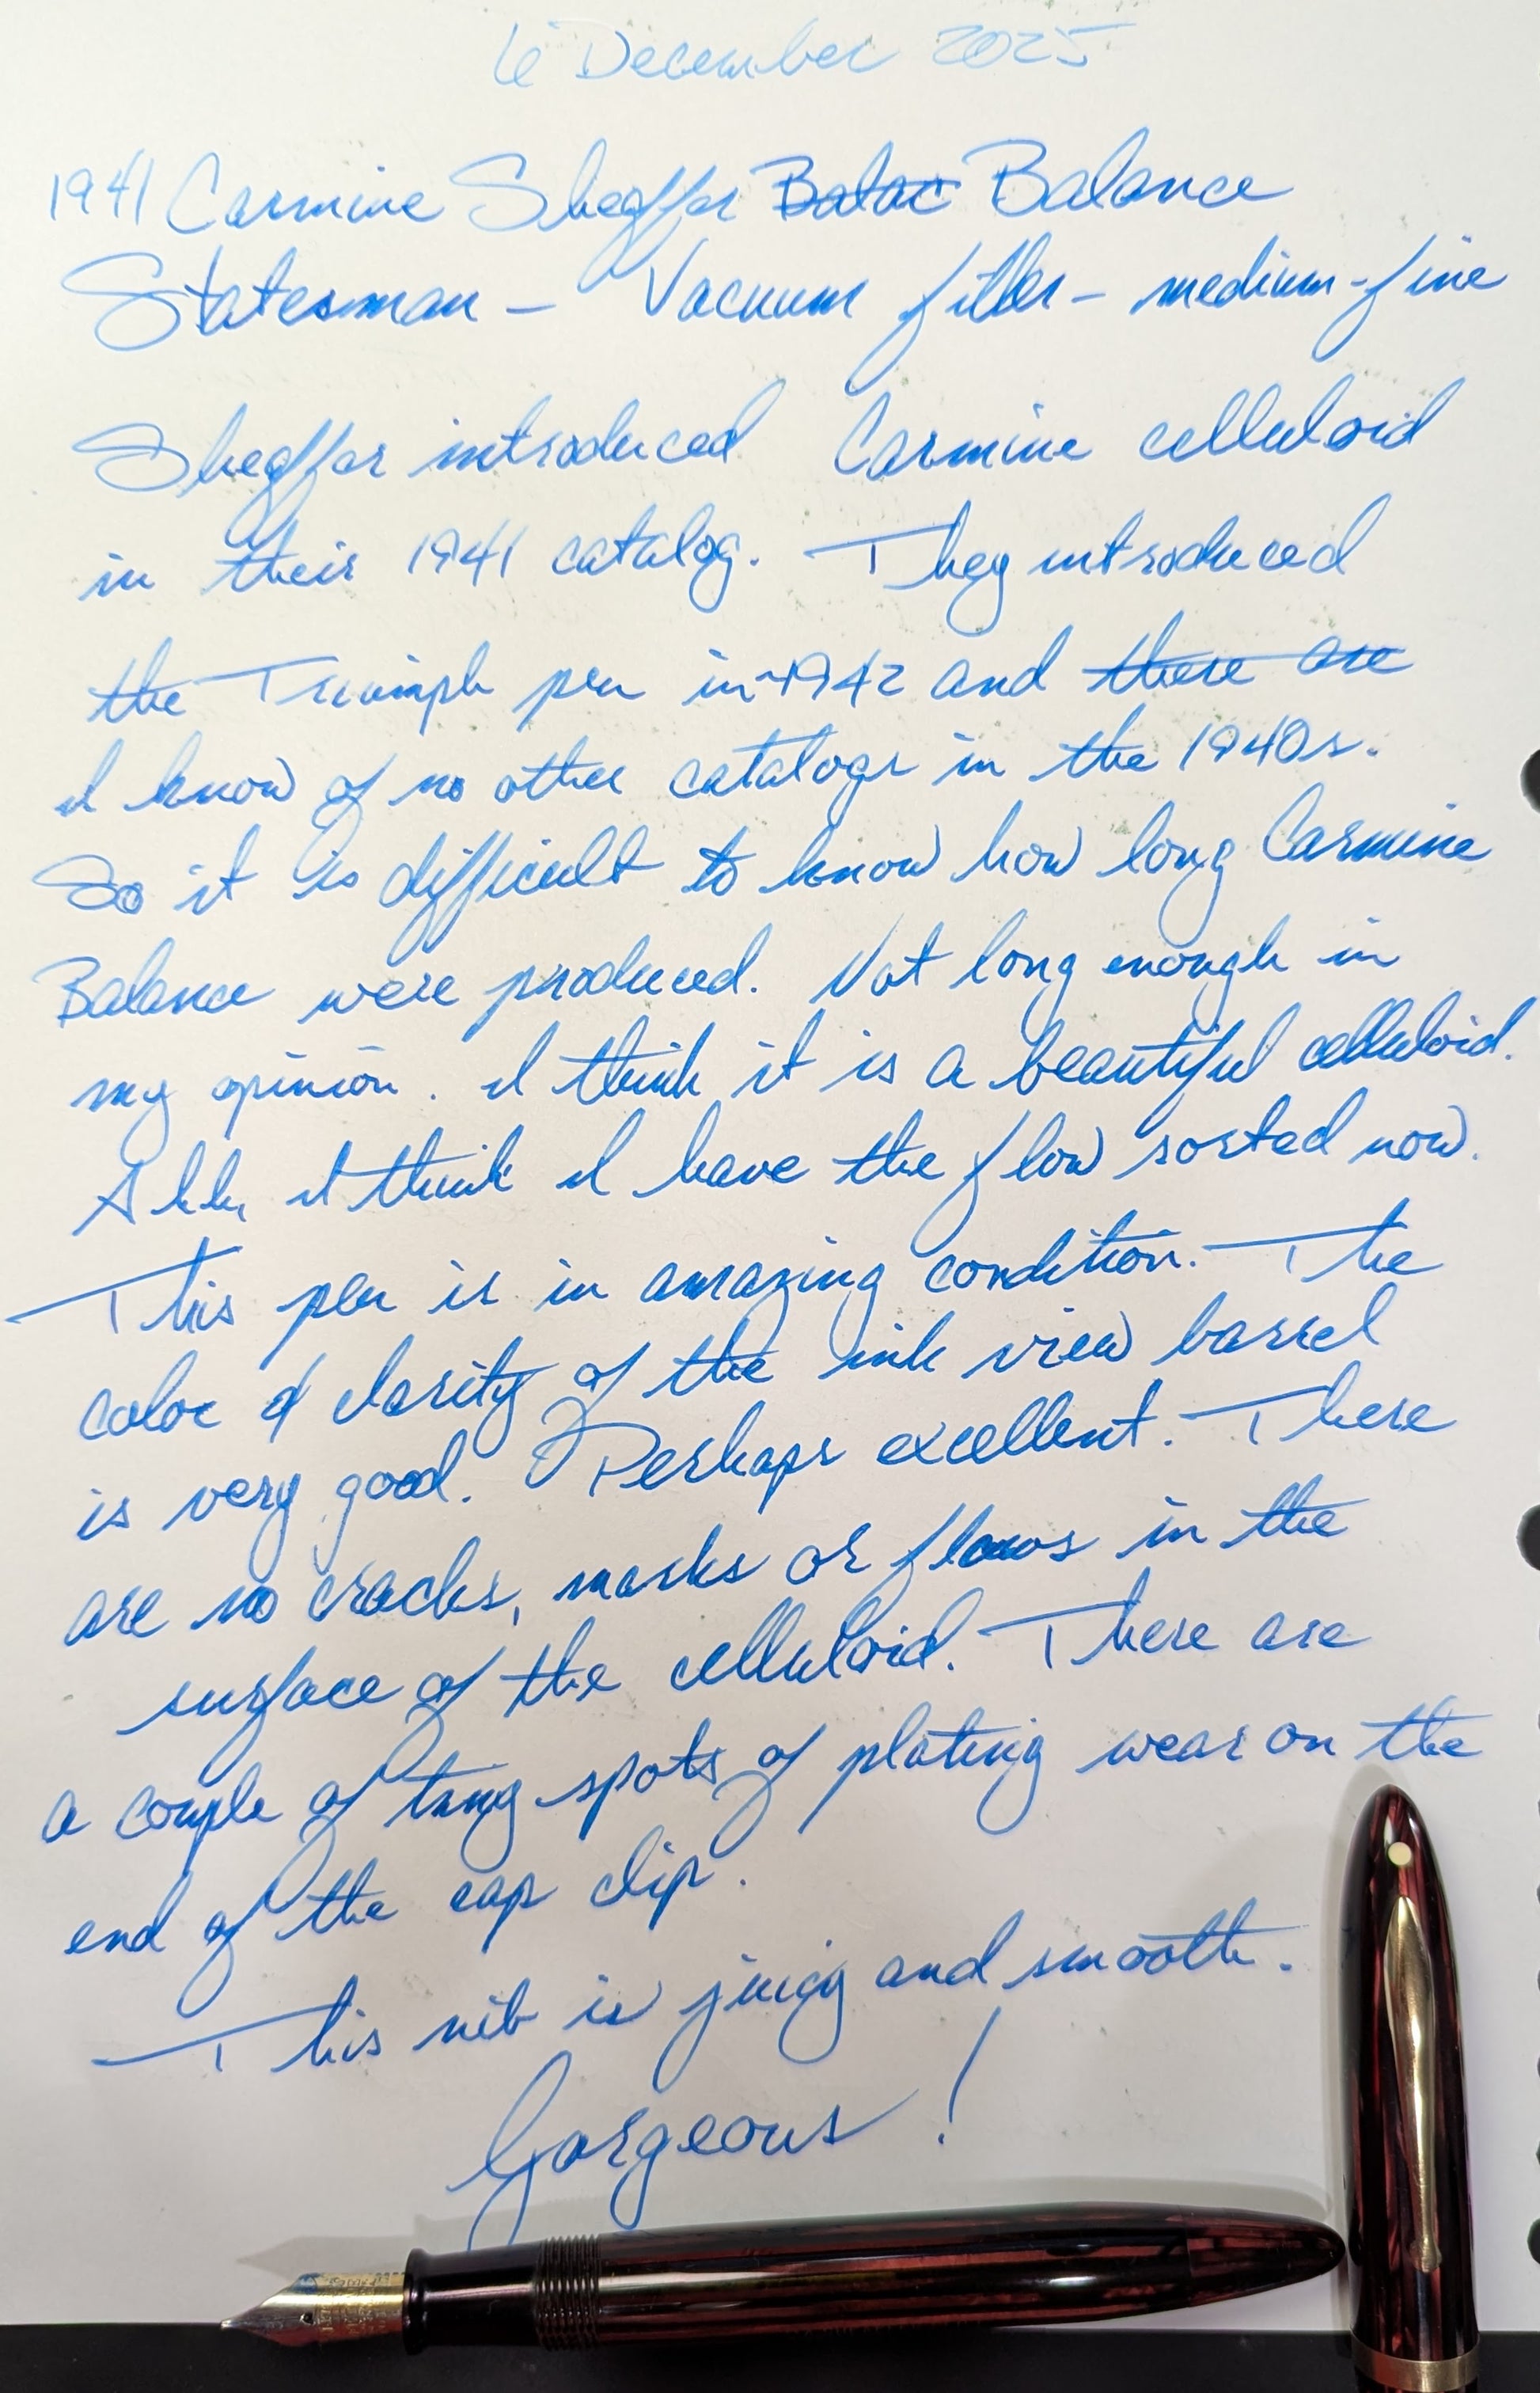 6 December 2025
1941 Carmine Sheaffer Balac Balance
Statesman – Vacuum filler – medium-fine
Sheaffer introduced Carmine celluloid
in their 1941 catalog. They introduced
the Triumph pen in 1942 and there are
I know of no other catalogs in the 1940s.
So it is difficult to know how long Carmine
Balance were produced. Not long enough in
my opinion. I think it is a beautiful celluloid.
Ahh, I think I have the flow sorted now.
This pen is in amazing condition. The
color & clarity of the ink view barrel
is very good. Perhaps excellent. There
are no cracks, marks or flaws in the
surface of the celluloid. There are
a couple of tiny spots of plating wear on the
end of the cap clip.
This nib is juicy and smooth.
Gorgeous!